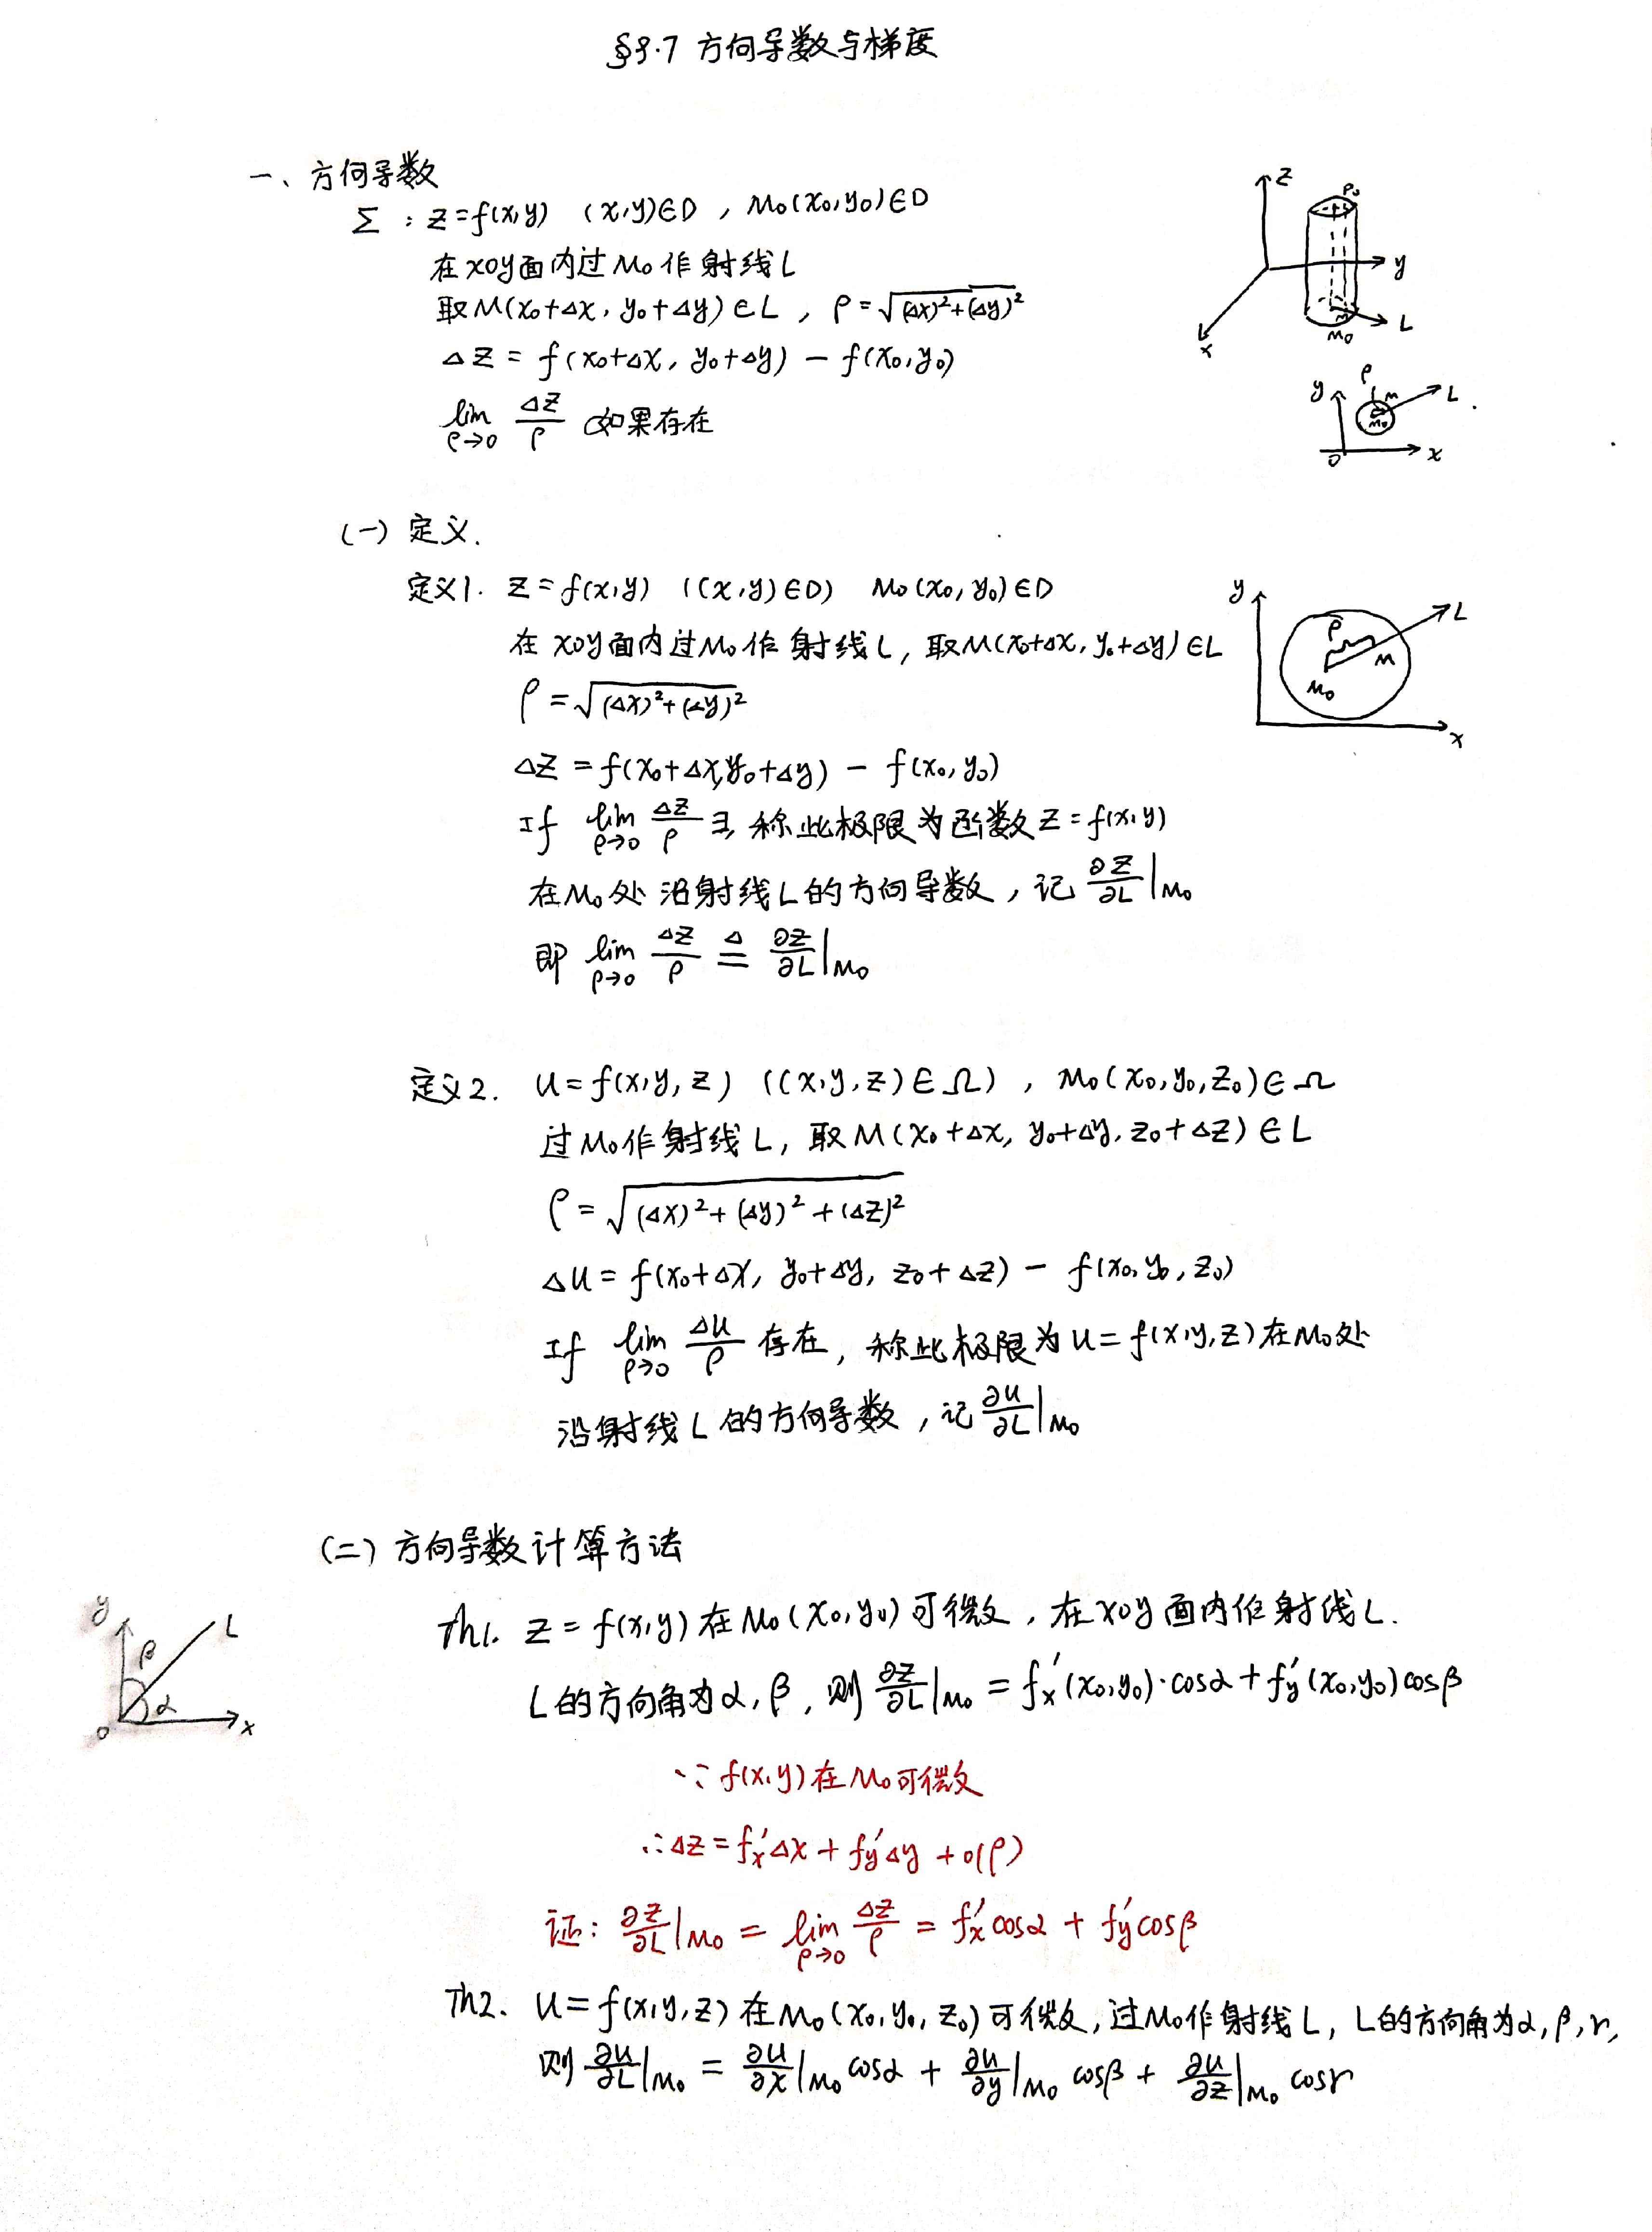 §9.7 方向导数与梯度
一、方向导数
Σ : z=f(x,y) (x,y)∈D , M₀(x₀,y₀)∈D
在xoy面内过M₀作射线L
取M(x₀+Δx, y₀+Δy)∈L , ρ=√((Δx)²+(Δy)²)
Δz = f(x₀+Δx, y₀+Δy) - f(x₀,y₀)
lim ρ→0 Δz/ρ 如果存在
z
P₀
y
M
L
M₀
x
y
ρ
M
L
M₀
o
x
(一) 定义.
定义1. z=f(x,y) ((x,y)∈D) M₀(x₀,y₀)∈D
在xoy面内过M₀作射线L, 取M(x₀+Δx, y₀+Δy)∈L
ρ=√((Δx)²+(Δy)²)
Δz = f(x₀+Δx, y₀+Δy) - f(x₀,y₀)
If lim ρ→0 Δz/ρ ∃, 称此极限为函数z=f(x,y)
在M₀处沿射线L的方向导数, 记 ∂z/∂L|M₀
即 lim ρ→0 Δz/ρ ≜ ∂z/∂L|M₀
y
L
ρ
M
M₀
x
定义2. u=f(x,y,z) ((x,y,z)∈Ω) , M₀(x₀,y₀,z₀)∈Ω
过M₀作射线L, 取M(x₀+Δx, y₀+Δy, z₀+Δz)∈L
ρ=√((Δx)²+(Δy)²+(Δz)²)
Δu = f(x₀+Δx, y₀+Δy, z₀+Δz) - f(x₀,y₀,z₀)
If lim ρ→0 Δu/ρ 存在, 称此极限为u=f(x,y,z)在M₀处
沿射线L的方向导数, 记 ∂u/∂L|M₀
(二) 方向导数计算方法
y
L
β
α
o
x
Th1. z=f(x,y)在M₀(x₀,y₀)可微, 在xoy面内作射线L.
L的方向角为α, β, 则 ∂z/∂L|M₀ = fx′(x₀,y₀)·cosα + fy′(x₀,y₀)cosβ
∵ f(x,y)在M₀可微
∴ Δz = fx′Δx + fy′Δy + o(ρ)
证: ∂z/∂L|M₀ = lim ρ→0 Δz/ρ = fx′cosα + fy′cosβ
Th2. u=f(x,y,z)在M₀(x₀,y₀,z₀)可微, 过M₀作射线L, L的方向角为α, β, γ,
则 ∂u/∂L|M₀ = ∂u/∂x|M₀ cosα + ∂u/∂y|M₀ cosβ + ∂u/∂z|M₀ cosγ